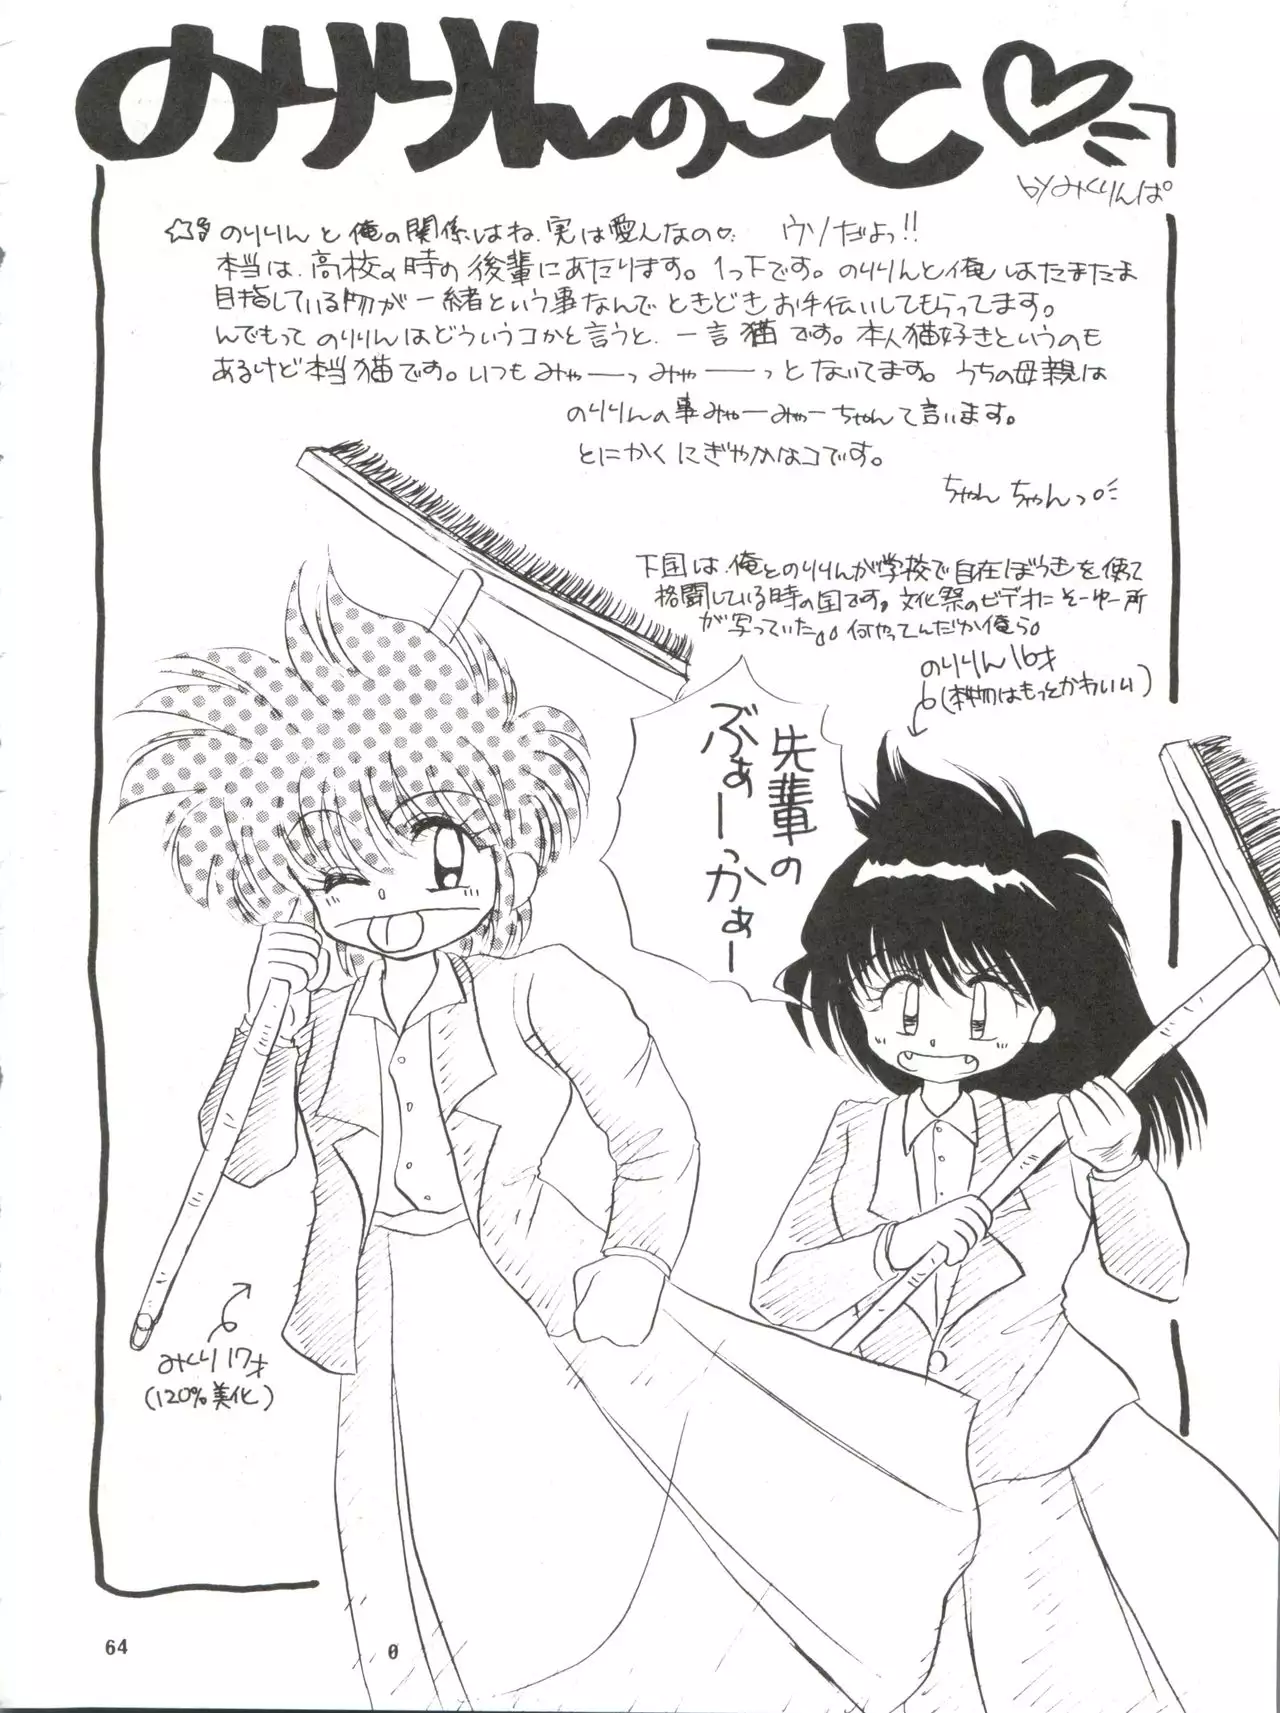 のりりんのこと♡
byみくりんぱ
☆彡のりりんと俺の関係はね、実は愛人なの♡ ウソだよっ!!
本当は、高校の時の後輩にあたります。1つ下です。のりりんと俺はたまたま
目指している物が一緒という事なんでときどきお手伝いしてもらってます。
んでもってのりりんはどういうコかと言うと、一言猫です。本人猫好きというのも
あるけど本当猫です。いつもみゃーっみゃーーっとないてます。うちの母親は
のりりんの事みゃーみゃーちゃんて言います。
とにかくにぎやかなコです。
ちゃんちゃんっ。
下図は、俺とのりりんが学校で自在ぼうきを使って
格闘している時の図です。文化祭のビデオにそーゆー所
が写っていた。。何やってんだか俺ら。
のりりん16才
(本物はもっとかわいい)
先輩の
ぶぁーっかぁー
みくり17才
(120%美化)
64